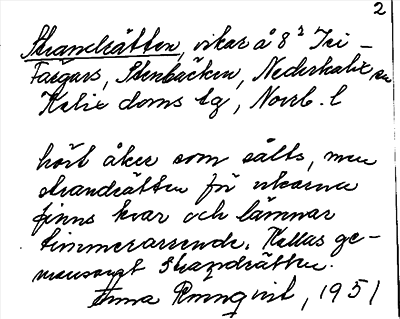 2
Strandrätten, vikar å 8² Tri-
Färgars, Stenbäcken, Nederkalix, sn
Kalix doms lg, Norrb. l
hört åker som sålts, men
strandrätten för vikarna
finns kvar och lämnar
timmerarrende. Kallas ge-
mensamt Strandrätten.
Anna Rönnqvist, 1951